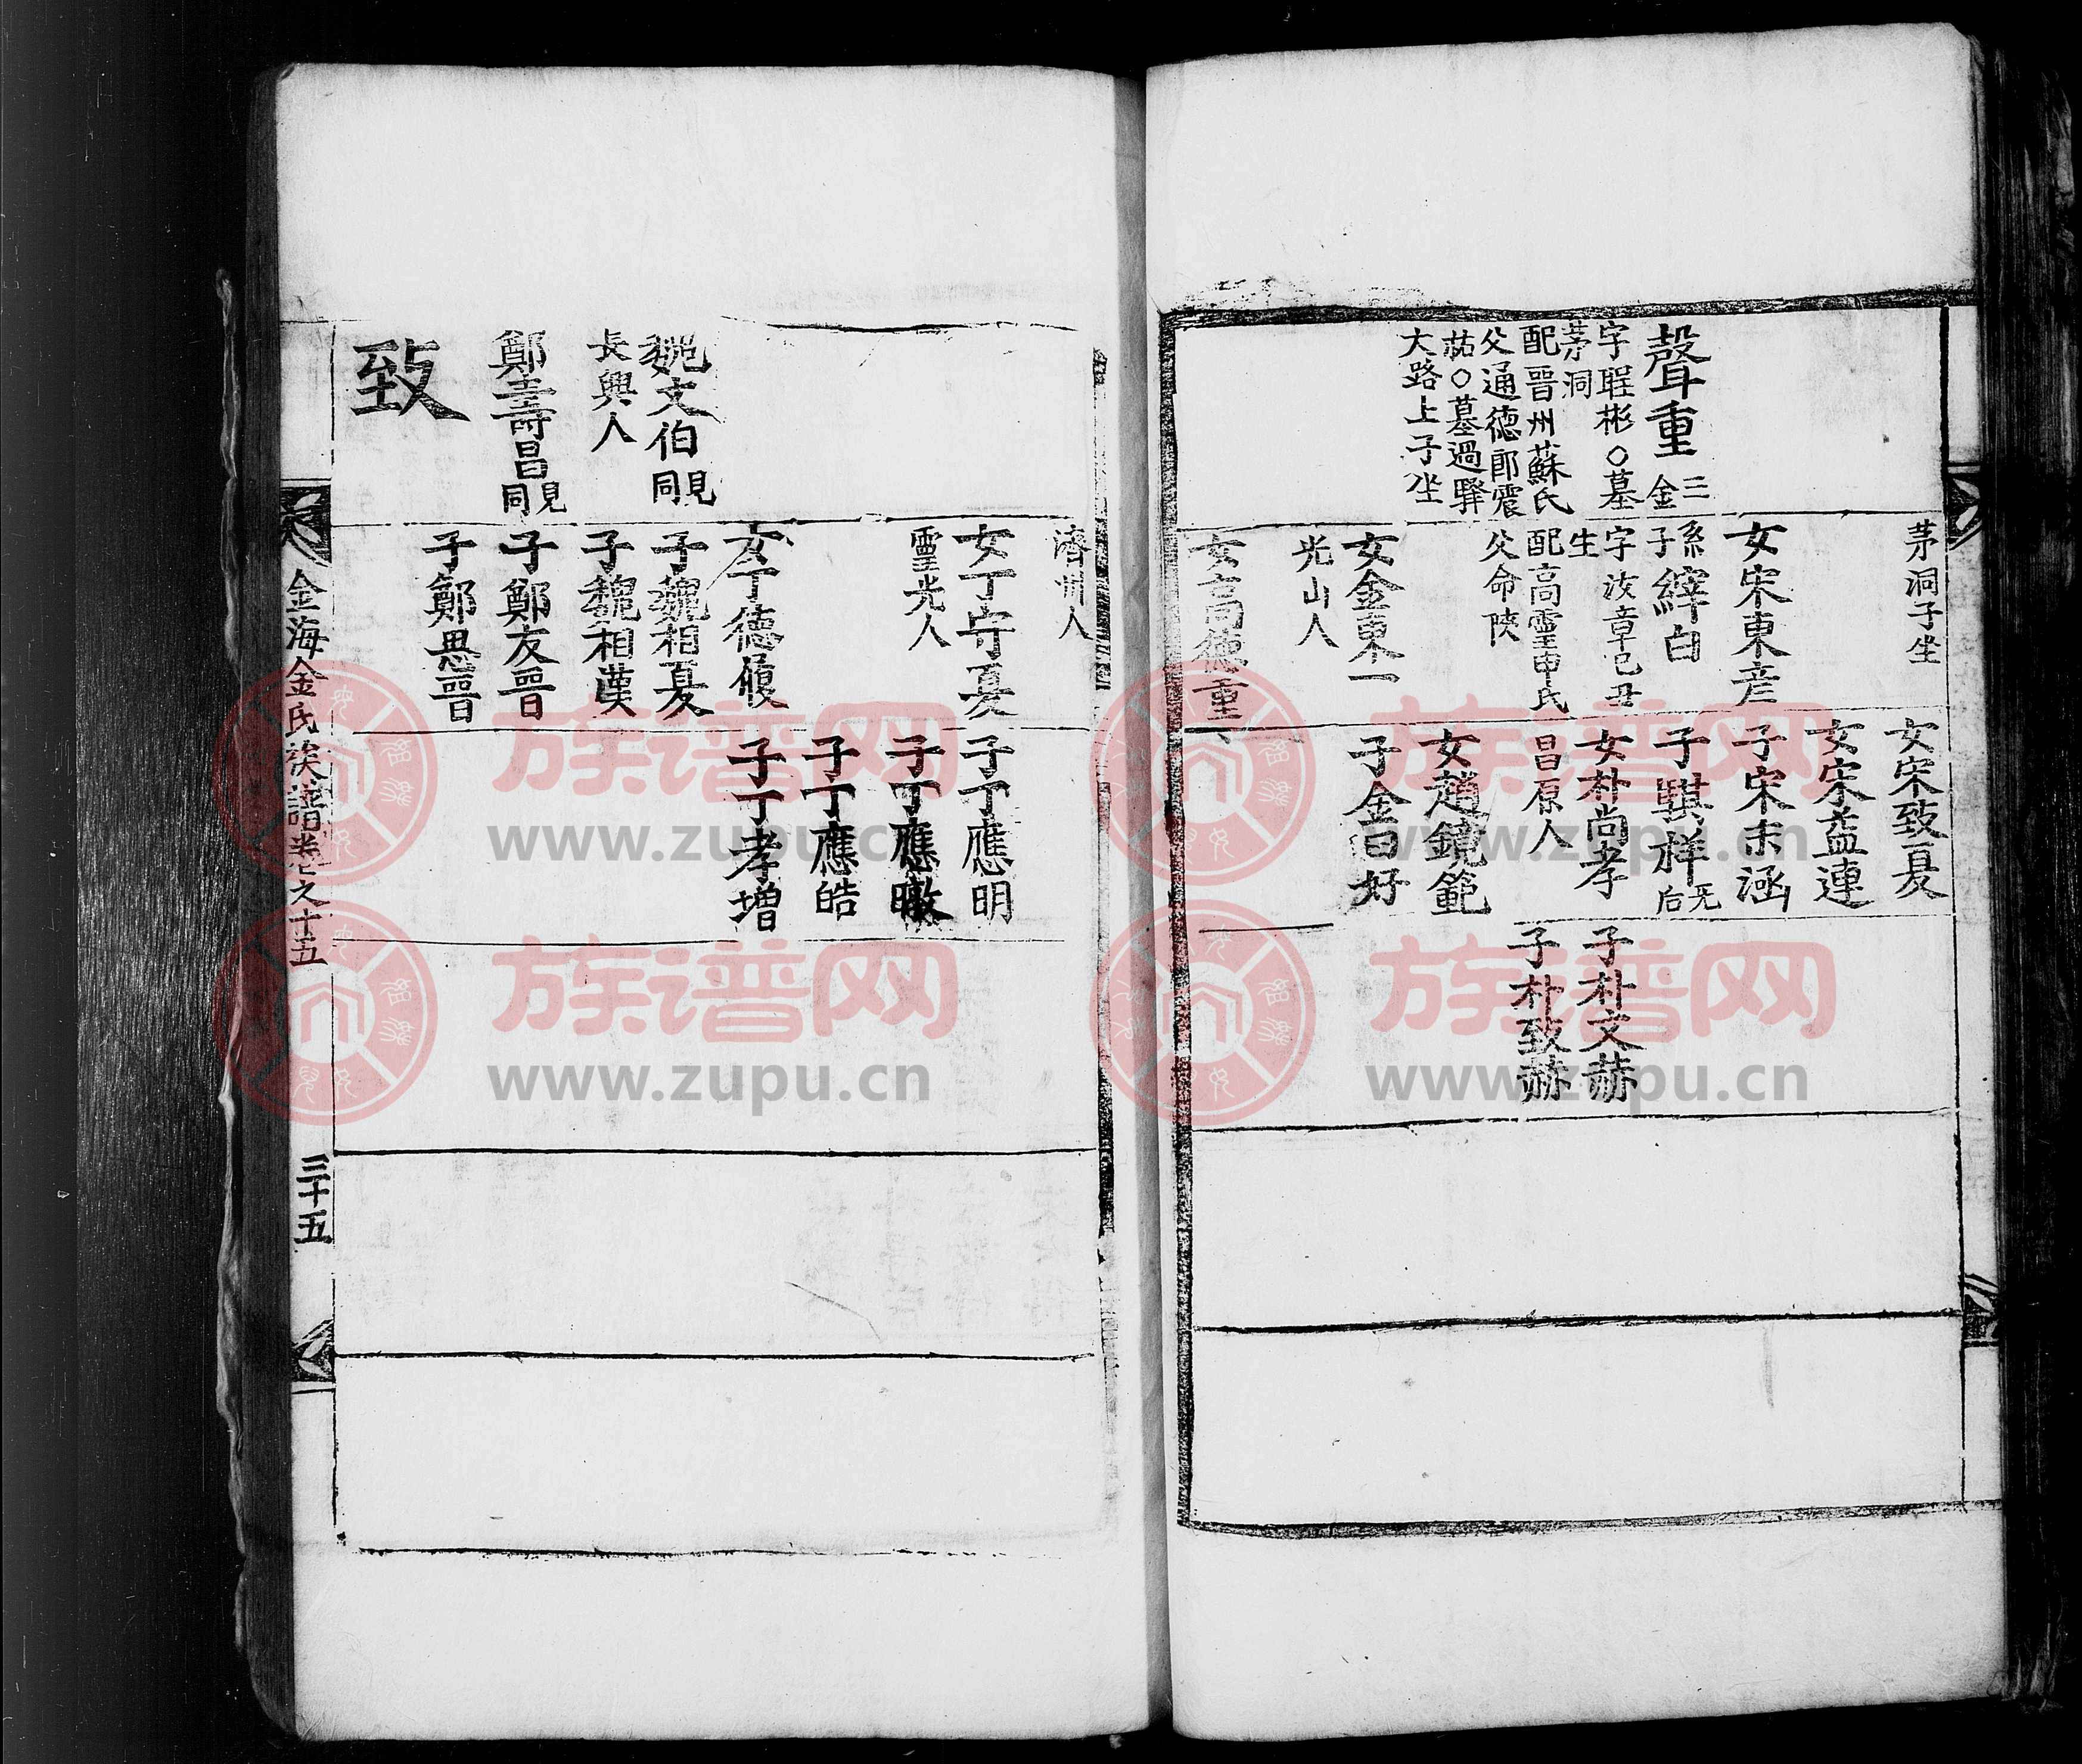 聲重
三
金
字聖彬○墓
茅洞
配晋州蘇氏
父通德郎震
祜○墓過驛
大路上子坐
茅洞子坐
女宋東彦
孫
子
繂白
字汝章己丑
生
配高靈申氏
父命陜
女金東一
光山人
女高德重
女宋致夏
女宋益連
子宋未涵
子騏祥
无后
女朴尚孝
昌原人
女趙鏡範
子金曰好
子朴文赫
子朴致赫
魏文伯
見同
長興人
鄭壽昌
見同
致
濟州人
女丁守夏
靈光人
女丁德馥
子魏相夏
子魏相漢
子鄭友晋
子鄭思晋
子丁應明
子丁應暾
子丁應皓
子丁孝增
金海金氏族譜卷之十五
三十五
族谱网
www.zupu.cn
族谱网
www.zupu.cn
族谱网
www.zupu.cn
族谱网
www.zupu.cn